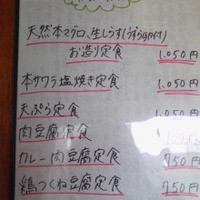 天然本マグロ、生しらす(うずら卵付)
お造り定食 1,050円
本サワラ塩焼き定食 1,050円
天ぷら定食 1,050円
肉豆腐定食
カレー肉豆腐定食 750円
鶏つくね豆腐定食 750円